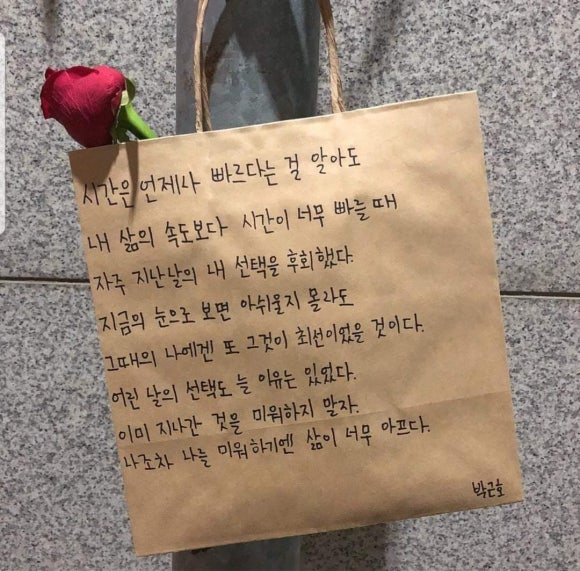 시간은 언제나 빠르다는 걸 알아도
내 삶의 속도보다 시간이 너무 빠를 때
자주 지난날의 내 선택을 후회했다.
지금의 눈으로 보면 아쉬울지 몰라도
그때의 나에겐 또 그것이 최선이었을 것이다.
어린 날의 선택도 늘 이유는 있었다.
이미 지나간 것을 미워하지 말자.
나조차 나를 미워하기엔 삶이 너무 아프다.
박근호